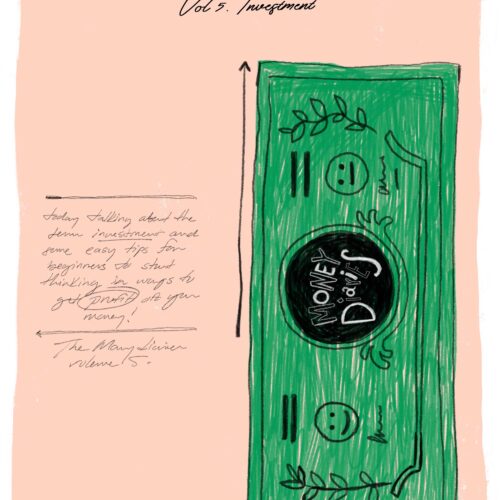 Vol 5. Investment
today talking about the
term investment and
some easy tips for
beginners to start
thinking in ways to
get profit off your
money!
The Money diaries
volume 5.
MONEY
DiariES